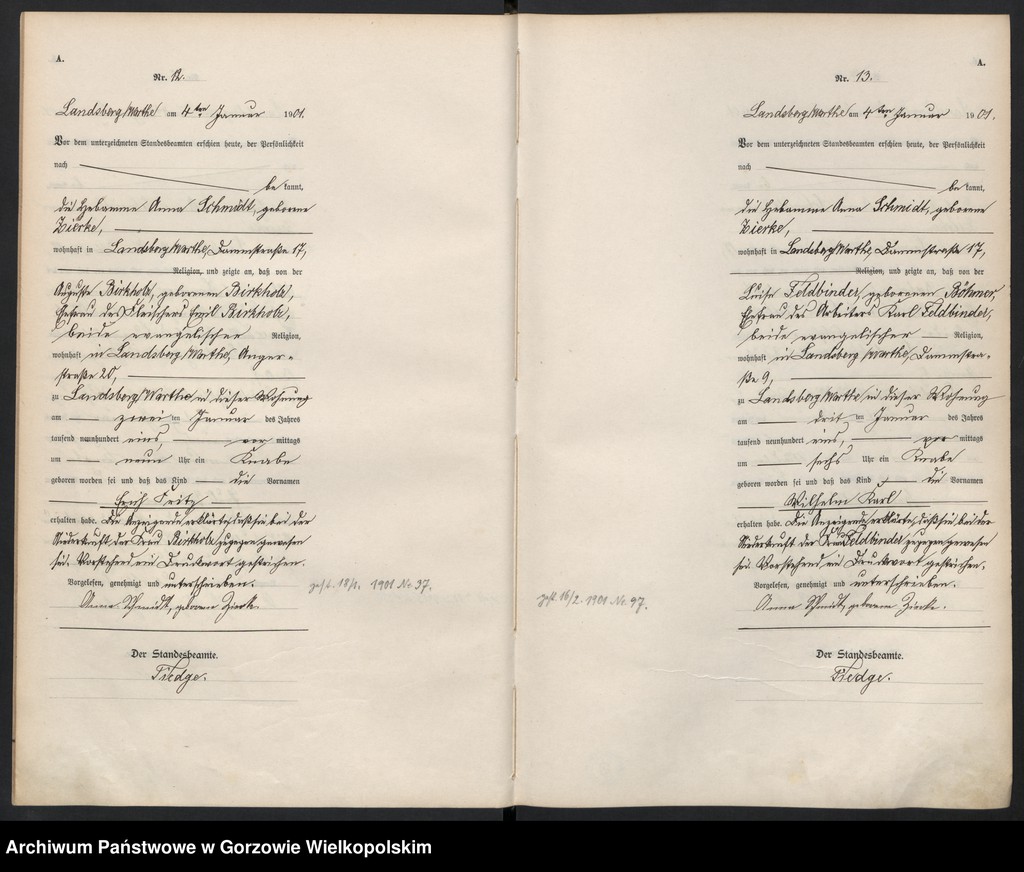 A.
Nr. 12.
Landsberg/Warthe am 4ten Januar 1901.
Vor dem unterzeichneten Standesbeamten erschien heute, der Persönlichkeit
nach
bekannt,
die Hebamme Anna Schmidt, geborene
Zierke,
wohnhaft in Landsberg/Warthe, Dammstraße 17,
Religion, und zeigte an, daß von der
Auguste Birkholz, geborenen Birkholz,
Ehefrau des Fleischers Emil Birkholz,
beide evangelischer Religion,
wohnhaft in Landsberg/Warthe, Anger-
straße 20,
zu Landsberg/Warthe, in dieser Wohnung
am zweiten Januar des Jahres
tausend neunhundert eins, vor mittags
um neun Uhr ein Knabe
geboren worden sei und daß das Kind die Vornamen
Erich Fritz
erhalten habe. Die Anzeigende erklärte, daß sie bei der
Niederkunft der Frau Birkholz zugegen gewesen
sei. Vorstehend ein Druckwort gestrichen.
Vorgelesen, genehmigt und unterschrieben.
Anna Schmidt, geborene Zierke.
Der Standesbeamte.
Tiedge.
gest. 18/1. 1901 Nr. 37.
A.
Nr. 13.
Landsberg/Warthe am 4ten Januar 1901.
Vor dem unterzeichneten Standesbeamten erschien heute, der Persönlichkeit
nach
bekannt,
die Hebamme Anna Schmidt, geborene
Zierke,
wohnhaft in Landsberg/Warthe, Dammstraße 17,
Religion, und zeigte an, daß von der
Luise Feldbinder, geborenen Böhmer,
Ehefrau des Arbeiters Karl Feldbinder,
beide evangelischer Religion,
wohnhaft in Landsberg/Warthe, Dammstra-
ße 9,
zu Landsberg/Warthe in dieser Wohnung
am dritten Januar des Jahres
tausend neunhundert eins, vor mittags
um sechs Uhr ein Knabe
geboren worden sei und daß das Kind die Vornamen
Wilhelm Karl
erhalten habe. Die Anzeigende erklärte, daß sie bei der
Niederkunft der Feldbinder zugegen gewesen
sei. Vorstehend ein Druckwort gestrichen.
Vorgelesen, genehmigt und unterschrieben.
Anna Schmidt, geborene Zierke.
Der Standesbeamte.
Tiedge.
gest. 16/2. 1901 Nr. 97.
Archiwum Państwowe w Gorzowie Wielkopolskim